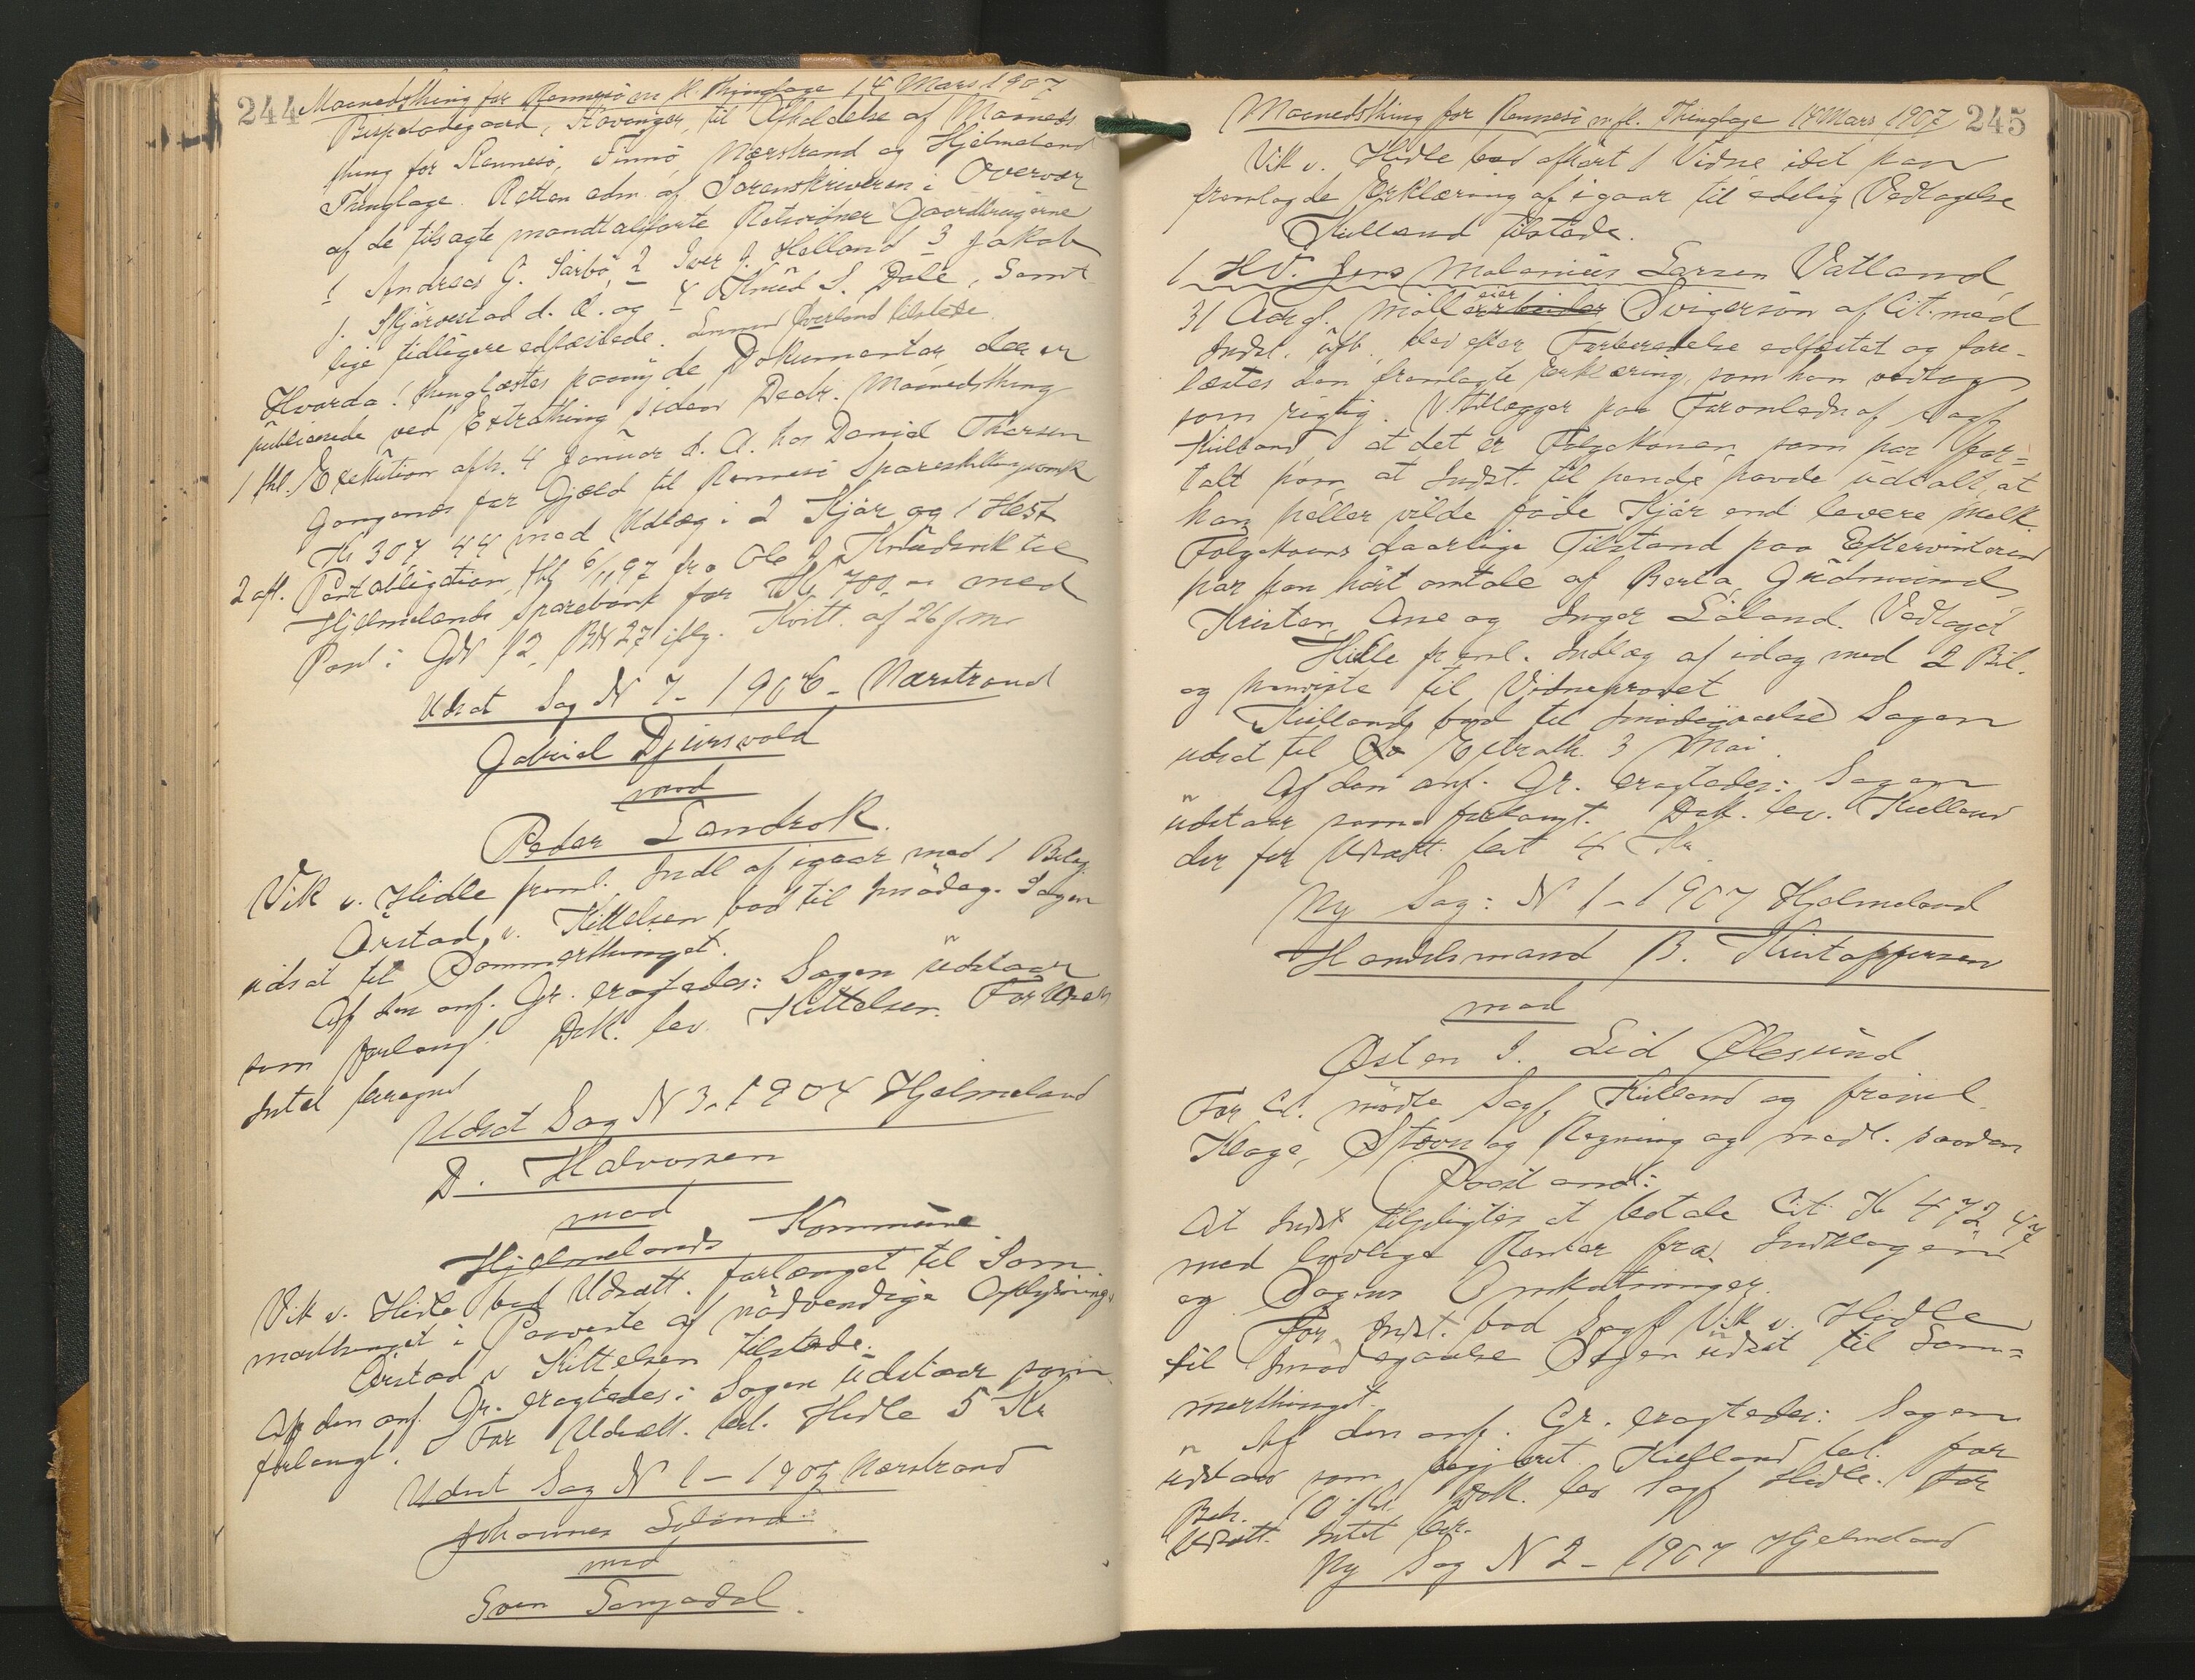 244 Maanedsthing for Rennesö m fl. Thinglage 14 Mars 1907
Bispeladegaard, Stavanger, til Afholdelse af Maaneds
thing for Rennesö, Finnö, Nærstrand og Hjelmeland
Thinglage. Retten adm. af Sorenskriveren i Overvær
af de tilsagte mandtalförte Retsvidner Gaardbrugerne
1 Andreas G. Sörbö, 2 Iver J. Helland 3 Jakob
J. Skjörvestad d. Æ. og 4 Knud S. Dale, samt
lige tidligere edfæstede. Lensmd tilstede.
Hvorda! thinglæstes paany de Dokumenter, der er
publicerede ved Extrathing siden Decbr. Maanedsthing
1 thl. Exekution afh. 4 Januar d. A. hos Daniel Thorsen
for Gjæld til Rennesö Spareskillingsbank
Kr 307,44 med Udlæg i 2 Kjör og 1 Hest
2 afl. Pantobligation thl 6/11 97 fra Ole J. til
Hjelmelands Sparebank for Kr 700,00 med
Pant i GN 12, BN 27 iflg. Kvitt. af 26 f. m.
Udsat Sag N 7 - 1906 - Nærstrand
Gabriel Djursvold
mod
Peder Landrok.
Vik v. Hidle freml. Indl af igaar med 1 Bilag
Örstad v. Kittelsen bad til Imödeg. Sagen
udsat til Sommerthinget.
Af den anf. Gr. eragtedes: Sagen udstaar
som forlangt. Dok. lev. Kittelsen. For Udsæt
Intet beregnet
Udsat Sag N 3 - 1904 Hjelmeland
D. Halvorsen
mod
Hjelmelands Kommune
Vik v. Hidle bad Udsætt. forlænget til Som
merthinget i Paavente af nödvendige Oplysning.
Örstad v Kittelsen tilstede.
Af den anf. Gr. eragtedes: Sagen udstaar som
forlangt. For Udsætt. bet. Hidle 5 Kr
Udsat Sag N 1 - 1907 Nærstrand
Johannes
mod
Sven
Maanedsthing for Rennesö m. fl. Thinglage 14 Mars 1907 245
Vik v. Hidle bad afhört 1 Vidne idet han
fremlagde Erklæring af igaar til edelig Vedtagelse
Kielland tilstede.
1 HV. Jens Malenius Larsen Vatland,
31 Aar g. Mölleeier Svigersön af Cit. med
Indst. ub. blev efter Forberedelse edfæstet og fore-
læstes den fremlagte Erklæring, som han vedtog
som rigtig. Vidlægger paa Foranledn af Sagf
Kielland, at det er Folgekonen, som har for=
talt ham, at Indst. til hende havde udtalt, at
han heller vilde föde Kjör end levere Melk.
Folgekonens daarlige Tilstand paa Eftervinteren
har han hört omtale af Berta, Gudmund,
Kristen, Ane og Inger Vedtaget
Hidle freml. Indlæg af idag med 2 Bil.
og henviste til Vidneprovet
Kielland bad til Imödegaaelse Sagen
udsat til Extrath. 3 Mai.
Af den anf. Gr. eragtedes: Sagen
udstaar som forlangt. Dok. lev. Kielland
der for Udsætt bet 4 Kr
Ny Sag: N 1 - 1907 Hjelmeland
Handelsmand B. Kristoffersen
mod
Östen I. Lid Ölesund
For Cit. mödte Sagf Kielland og freml.
Klage, Stævn og Regning og nedl. saadan
Paastand:
At Indst tilpligtes at betale Cit. Kr 472,47
med lovlige Renter fra Indklagen
og Sagens Omkostninger.
For Indst. bad Sagf Vik v. Hidle
til Imödegaaelse Sagen udsat til Som=
merthinget.
Af den anf. Gr. eragtedes: Sagen
udstaar som begjæret. Kielland bet. for
Beh. Dok. lev Sagf Hidle. For
Udsætt. Intet ber.
Ny Sag N 2 - 1907 Hjelmeland